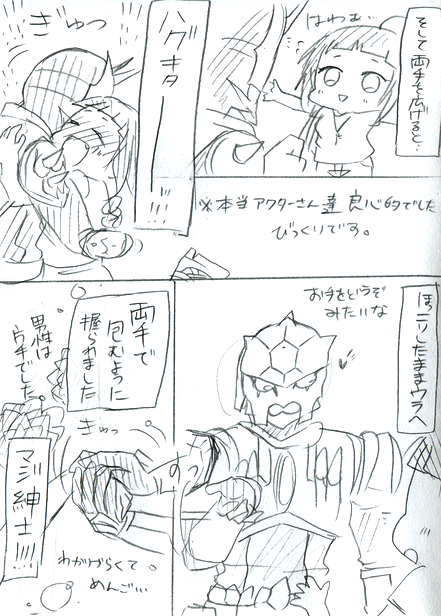 そして両手を広げると…
はわむ…
ハグキタ
!!!!
ぎゅっ
※本当アクターさん達良心的でした
びっくりです。
ほっこりしたままウラへ
お手をどうぞ
みたいな
すっ
両手で
包むように
握られました
男性は
ウチでした。
きゅっ
マジ紳士!!!!
わかげらくて
めんご…。